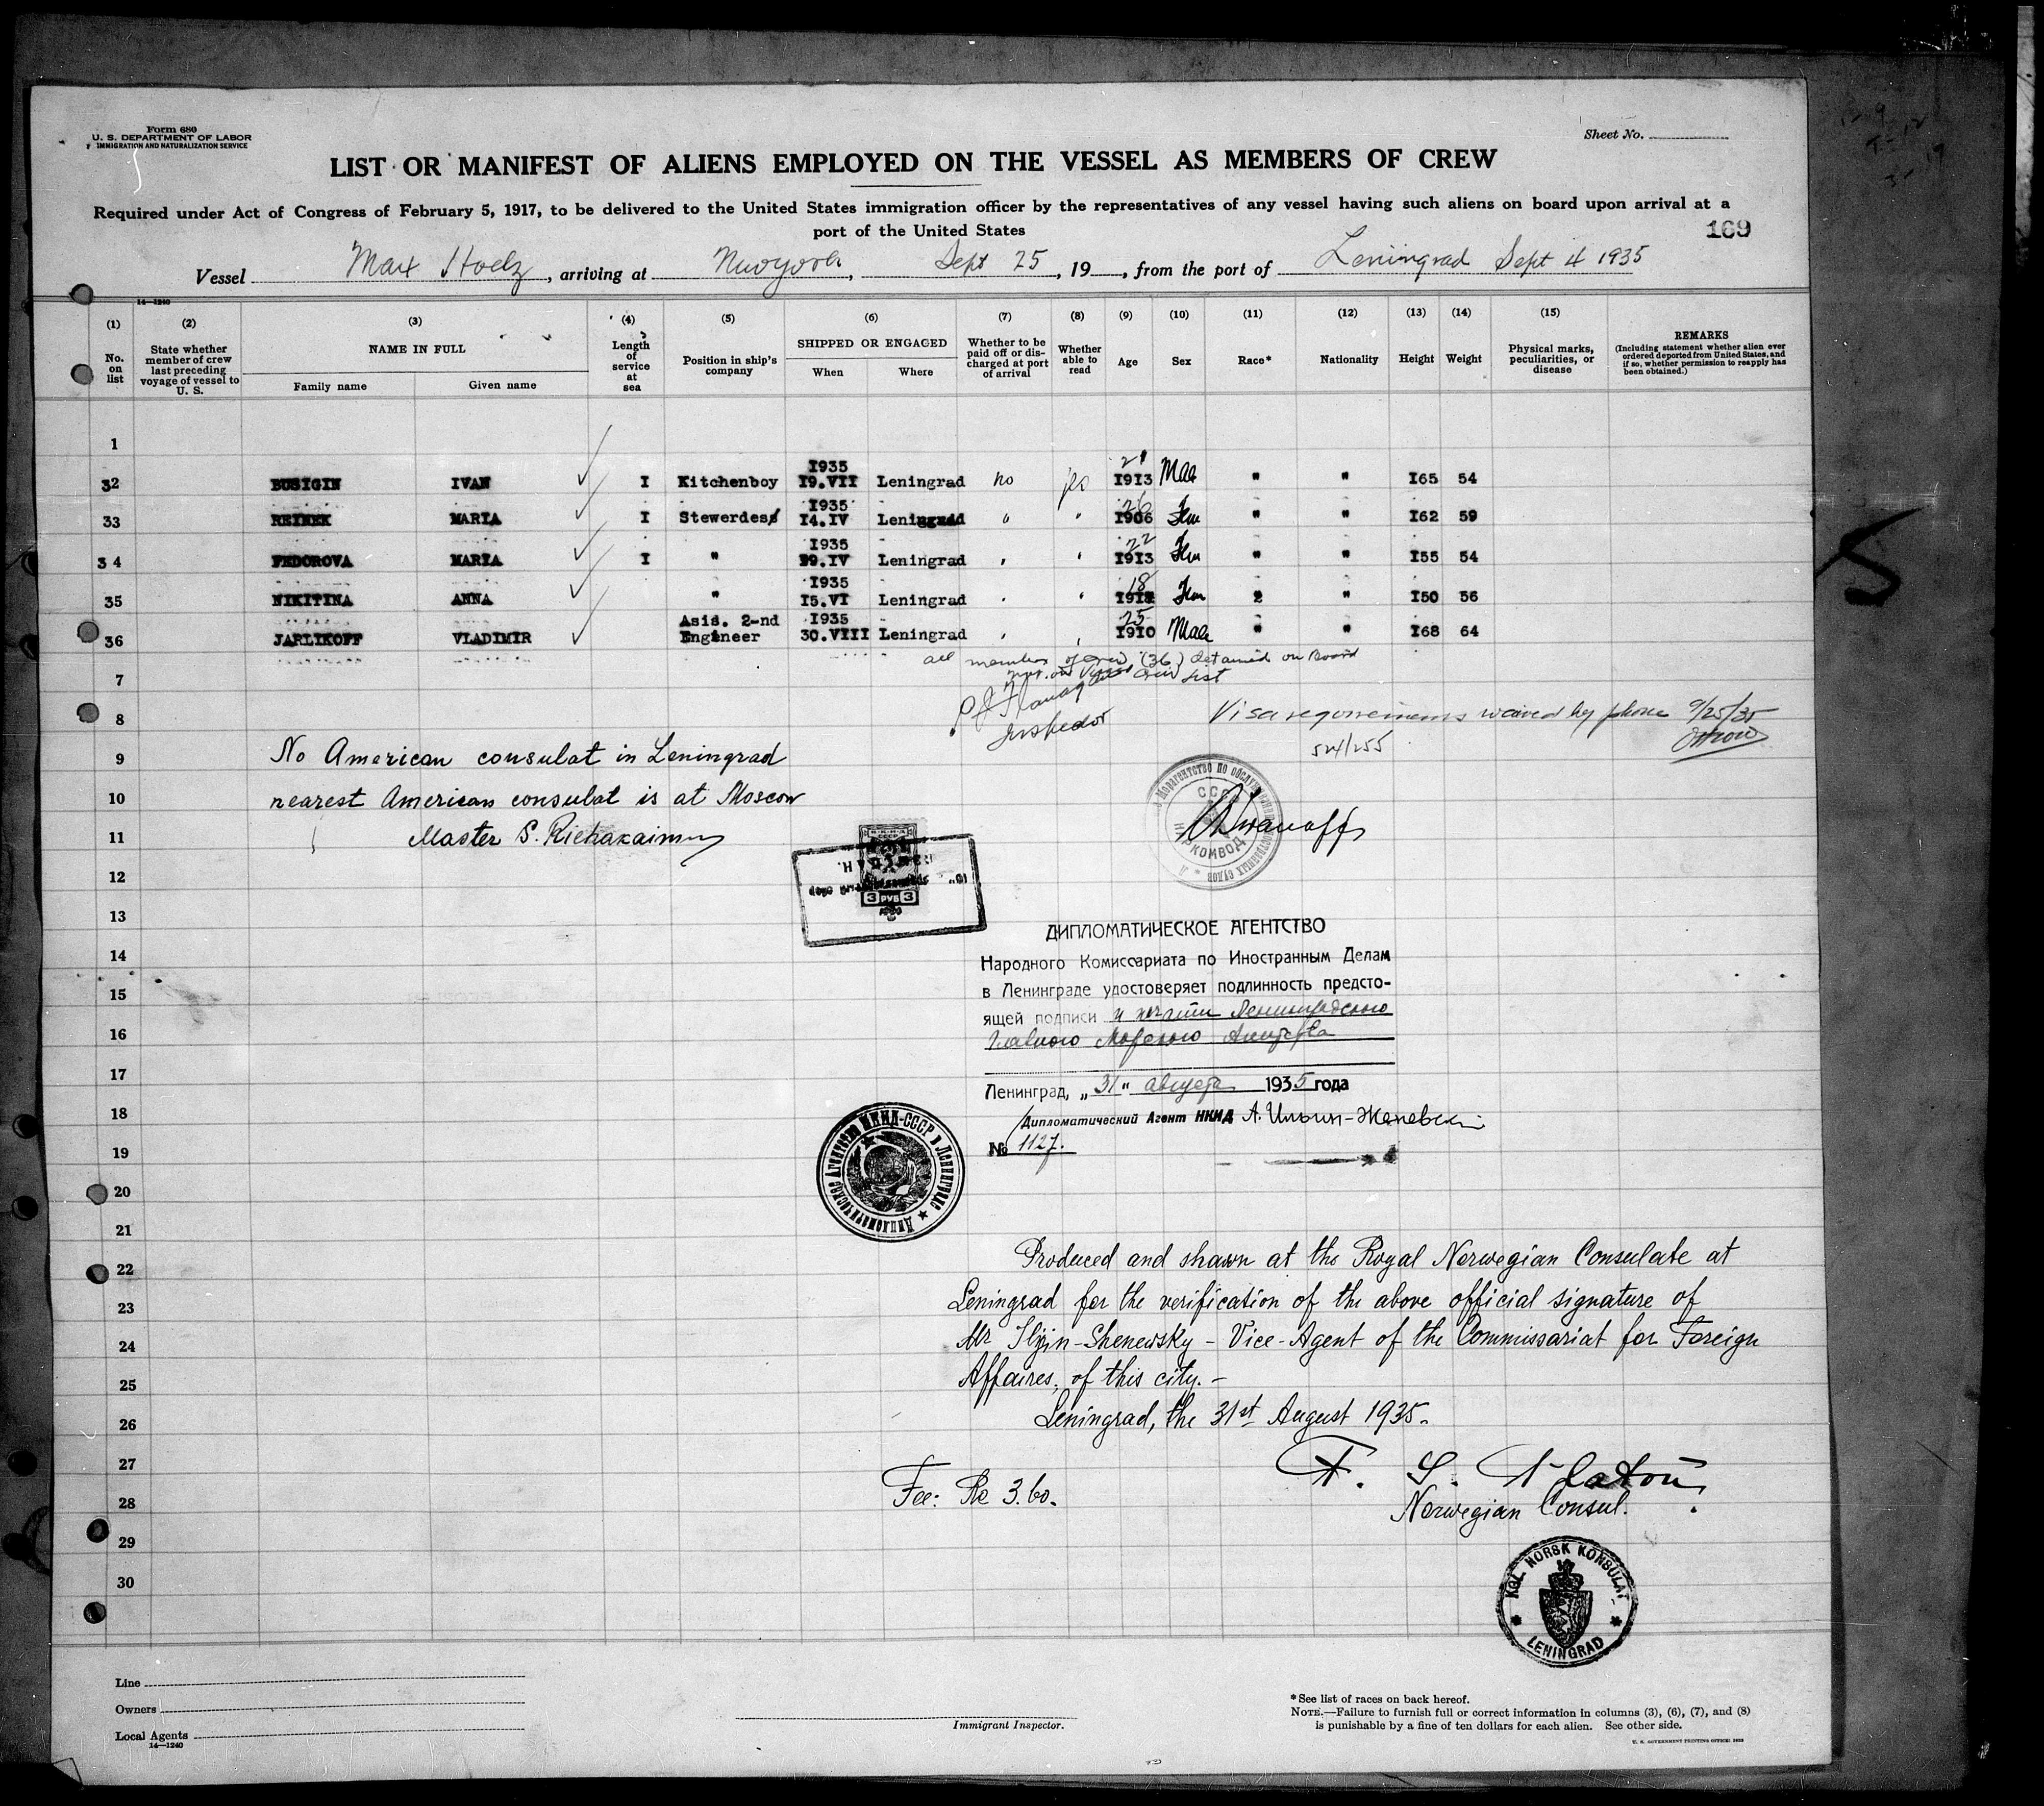 Form 680
U. S. DEPARTMENT OF LABOR
IMMIGRATION AND NATURALIZATION SERVICE
Sheet No.
LIST OR MANIFEST OF ALIENS EMPLOYED ON THE VESSEL AS MEMBERS OF CREW
Required under Act of Congress of February 5, 1917, to be delivered to the United States immigration officer by the representatives of any vessel having such aliens on board upon arrival at a
port of the United States
169
Vessel Max Hoelz, arriving at Newyork, Sept 25, 19, from the port of Leningrad Sept 4 1935
14-1240
(1) (2) (3) (4) (5) (6) (7) (8) (9) (10) (11) (12) (13) (14) (15)
No. on list
State whether member of crew last preceding voyage of vessel to U. S.
NAME IN FULL
Family name Given name
Length of service at sea
Position in ship's company
SHIPPED OR ENGAGED
When Where
Whether to be paid off or discharged at port of arrival
Whether able to read
Age
Sex
Race*
Nationality
Height
Weight
Physical marks, peculiarities, or disease
REMARKS
(Including statement whether alien ever ordered deported from United States, and if so, whether permission to reapply has been obtained.)
1
32 BUSIGIN IVAN I Kitchenboy 1935 19.VII Leningrad no yes 1913 Male " " 165 54
33 REINEK MARIA I Stewerdess 1935 14.IV Leningrad " " 26 1906 Fem " " 162 59
34 FEDOROVA MARIA I " 1935 29.IV Leningrad " " 22 1913 Fem " " 155 54
35 NIKITINA ANNA " 1935 15.VI Leningrad " " 18 Fem " " 150 56
36 JARLIKOFF VLADIMIR Asis. 2-nd Engineer 1935 30.VIII Leningrad " " 25 1910 Male " " 168 64
all members of crew (36) detained on Board
Crew List
7
P J Flanagan
Inspector
8
Visa requirements waived by phone 9/25/35
524/255
9 No American consulat in Leningrad
10 nearest American consulat is at Moscow
11 Master S. Riehakaimn
Iwanoff
СССР
НАРКОМВОД
НКИД
СССР
3 РУБ 3
12
13
ДИПЛОМАТИЧЕСКОЕ АГЕНТСТВО
14 Народного Комиссариата по Иностранным Делам
15 в Ленинграде удостоверяет подлинность предсто-
ящей подписи и печати Ленинградского
16 Главного Морского Агентства
17 Ленинград, „31“ августа 1935 года
18 Дипломатический Агент НКИД А. Ильин-Женевский
19 № 1127.
Дипломатическое Агентство НКИД-СССР в Ленинграде
20
21
22 Produced and shawn at the Royal Norwegian Consulate at
23 Leningrad for the verification of the above official signature of
24 Mr Iljin-Shenewsky - Vice-Agent of the Commissariat for Foreign
25 Affaires, of this city.-
26 Leningrad, the 31st August 1935.
27
28 Fee: 3.60.
Norwegian Consul.
29
30
KGL. NORSK KONSULAT
LENINGRAD
Line
Owners
Local Agents
14-1240
Immigrant Inspector.
*See list of races on back hereof.
NOTE.—Failure to furnish full or correct information in columns (3), (6), (7), and (8)
is punishable by a fine of ten dollars for each alien. See other side.
U. S. GOVERNMENT PRINTING OFFICE: 1933